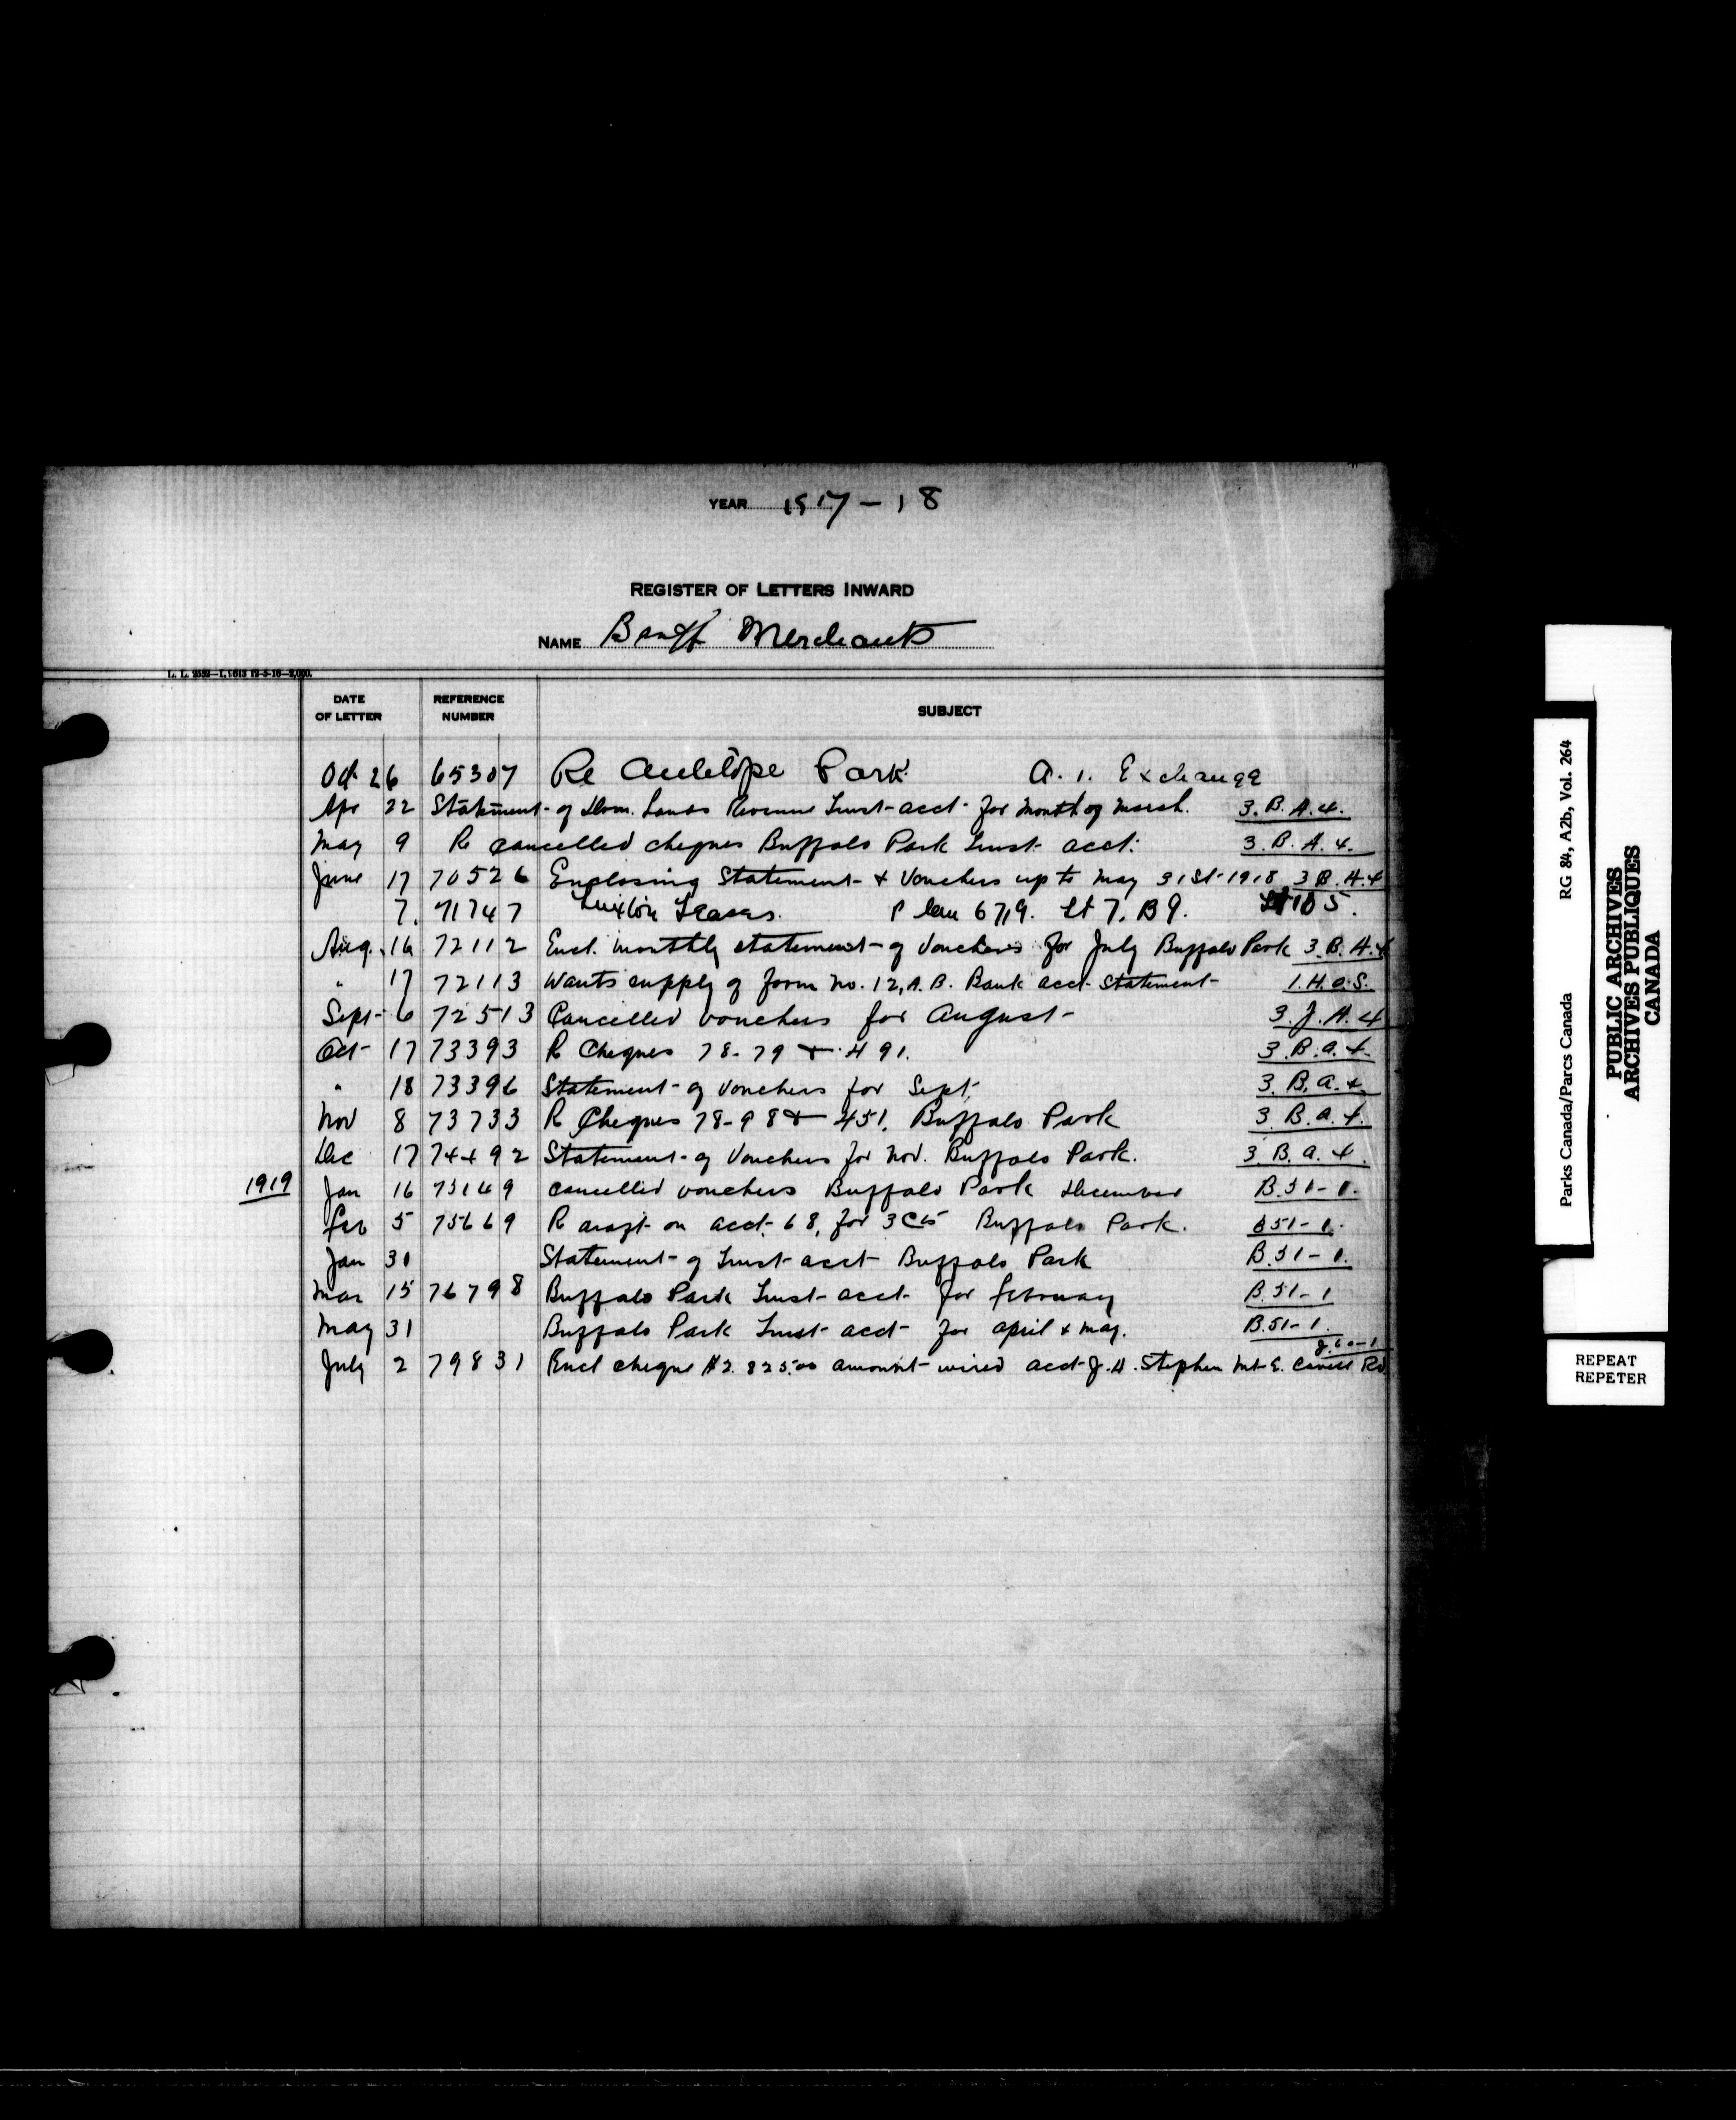 YEAR 1917-18
REGISTER OF LETTERS INWARD
NAME Banff Merchants
L. L. 2552—L. 1613 12-5-16—2,000.
DATE OF LETTER REFERENCE NUMBER SUBJECT
Oct 26 65307 Re Antelope Park. A. 1. Exchange
Apr 22 Statement of Dom. Lands Revenue Trust acct. for month of March. 3. B. A. 4.
May 9 R cancelled cheques Buffalo Park Trust acct. 3. B. A. 4.
June 17 70526 Enclosing Statement & Vouchers up to May 31st 1918 3 B. A. 4
7. 71747 Luxton Leases. Plan 6719. Lt 7. B 9.
Aug. 16 72112 Encl. monthly statement of Vouchers for July Buffalo Park 3. B. A. 4
" 17 72113 Wants supply of form No. 12, A. B. Bank acct. Statement 1. H. O. S.
Sept 6 72513 Cancelled vouchers for August 3. J. A. 4
Oct 17 73393 R Cheques 78-79 + 491. 3. B. a. 4.
" 18 73396 Statement of Vouchers for Sept. 3. B. a. 4
Nov 8 73733 R Cheques 78-98 + 451. Buffalo Park 3. B. a. 4.
Dec 17 74492 Statement of Vouchers for Nov. Buffalo Park. 3. B. a. 4.
1919 Jan 16 75149 cancelled vouchers Buffalo Park December B. 51-1.
Feb 5 75669 R on acct. 68, for 3 cts Buffalo Park. B 51-1.
Jan 31 Statement of Trust acct Buffalo Park B. 51-1.
Mar 15 76798 Buffalo Park Trust acct for February B. 51-1
May 31 Buffalo Park Trust acct for april & may. B. 51-1.
J. 60-1
July 2 79831 Encl cheque $2.825.00 amount wired acct J. H. Stephen Mt E. Cavell Rd.
Parks Canada/Parcs Canada RG 84, A2b, Vol. 264
PUBLIC ARCHIVES
ARCHIVES PUBLIQUES
CANADA
REPEAT
REPETER